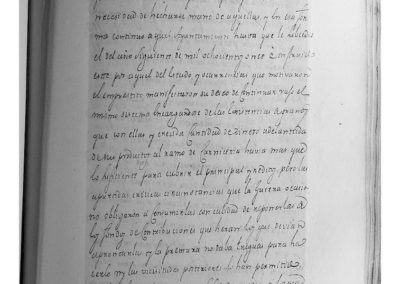 necesidad de hecharse mano de aquellas, y en esta for
ma continuo aquel Ayuntamiento hasta que le sucedio
el del año siguiente de mil ochocientos once. Enterado
este por aquel del estado y ocurrencias que motivaron
el emprestito manifestaron su deseo de continuar vajo el
mismo sistema encargandose de las existencias
que con ellas y crecida cantidad de dinero adelantada
de sus productos al ramo de Carniceria havia mas que
lo suficiente para cubrir el principal y reditos, pero las
apuradas criticas circunstancias que la guerra ocacio
no obligaron a consumirlas con calidad de reponerlas
los fondos de Contribuciones que heran los que devian
aprontarlas y la premura no daba treguas para ha
cerlo ni las vicisitudes posteriores lo han permitido